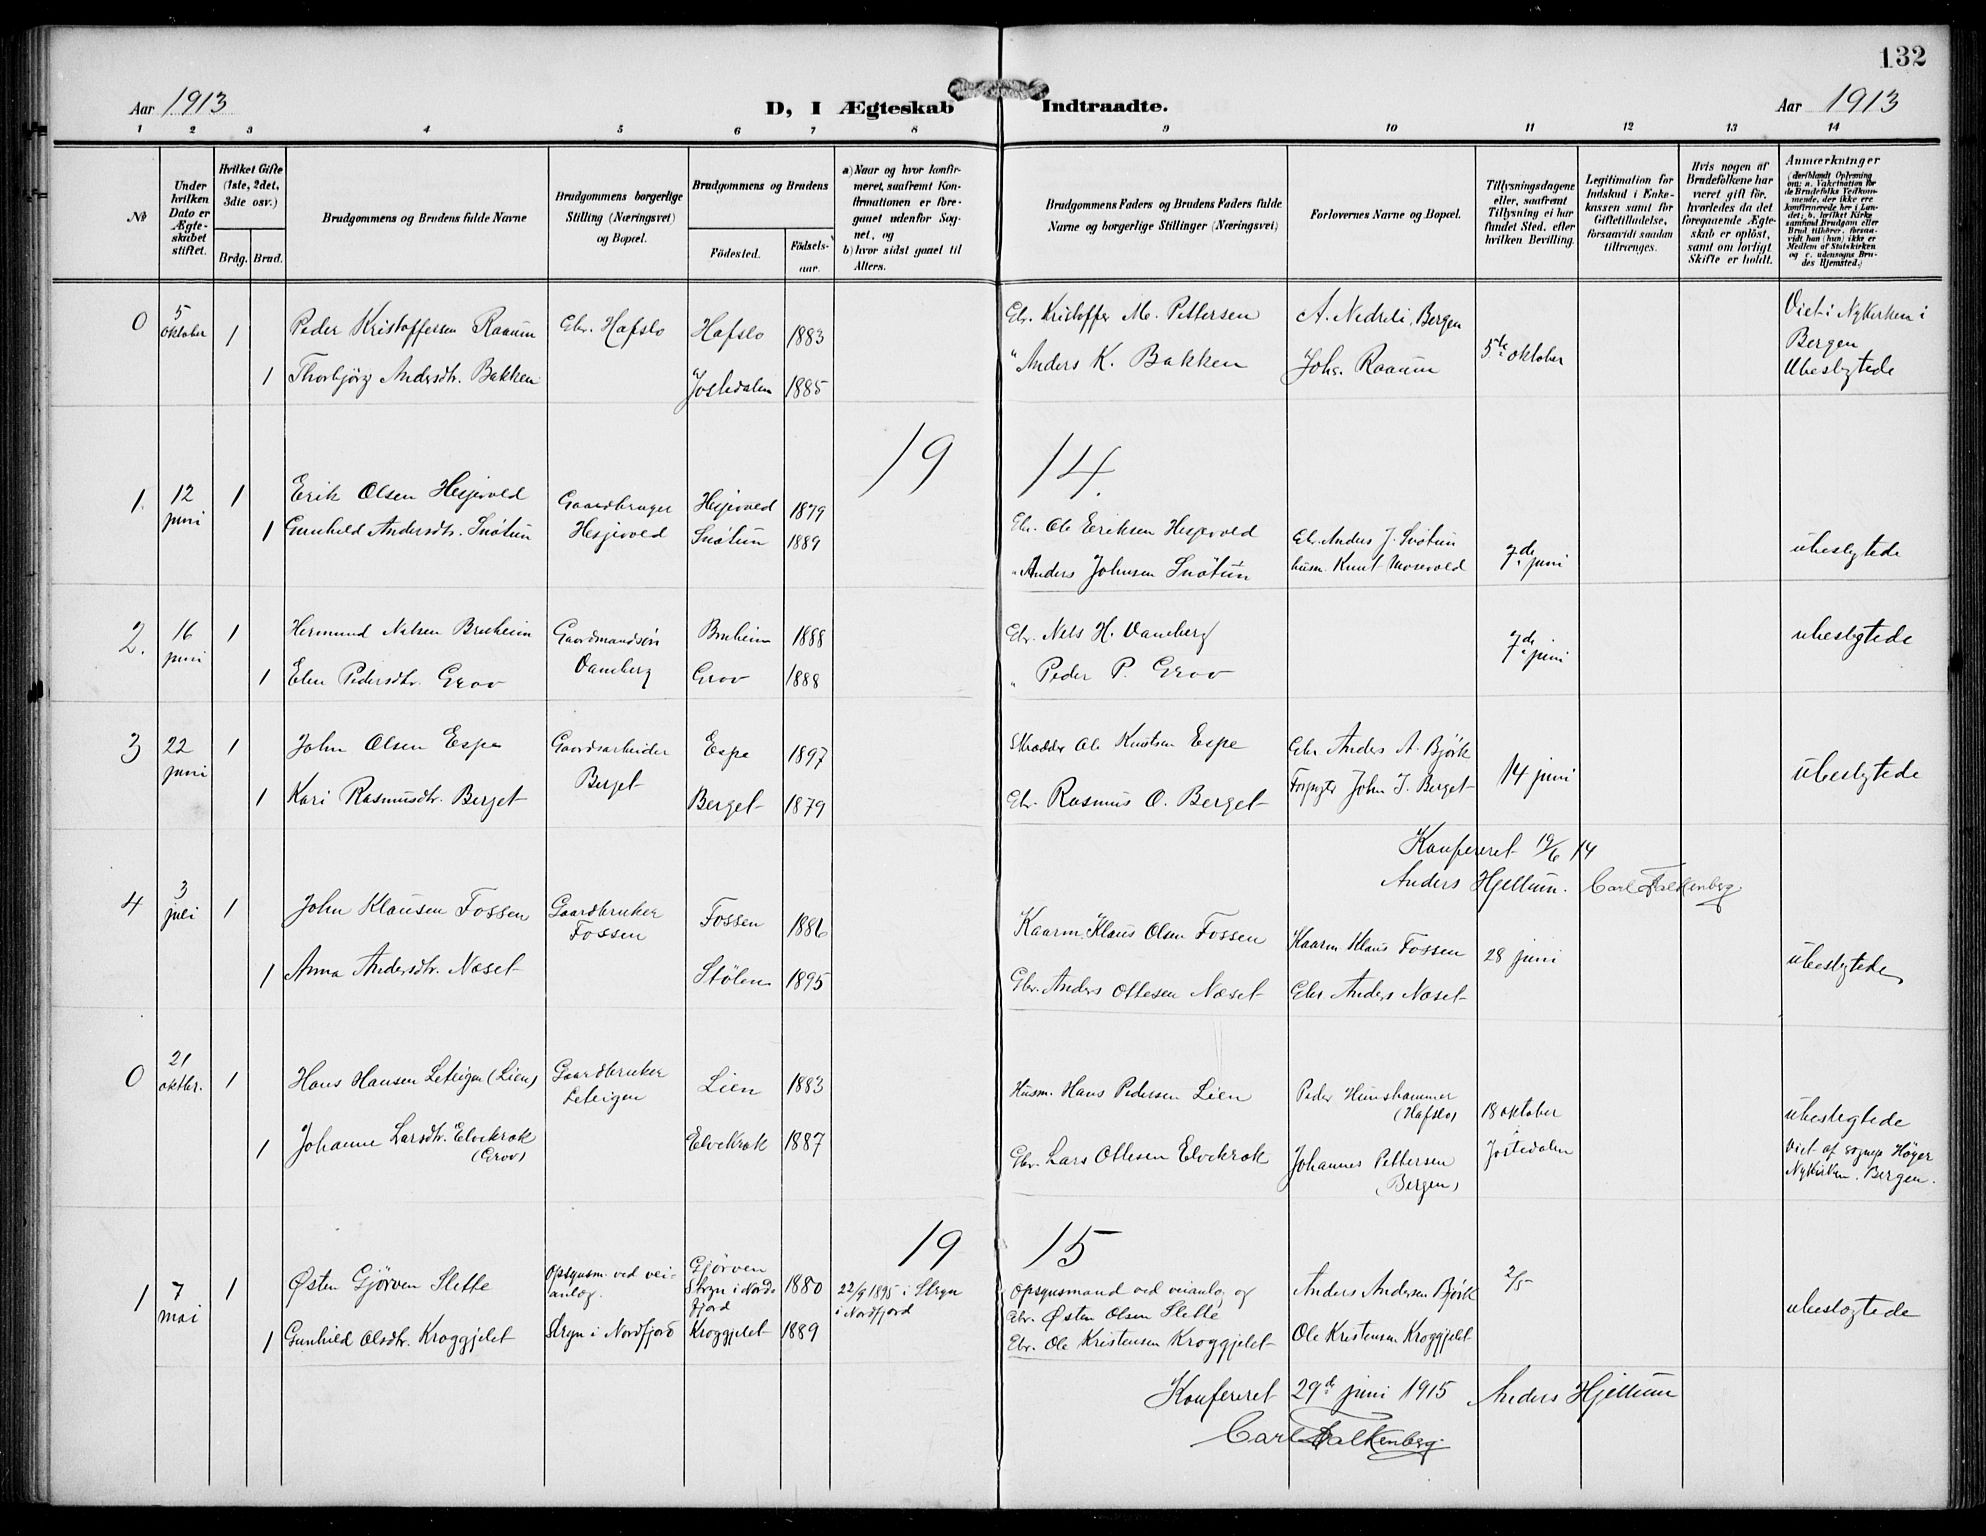 132
Aar 1913
D, I Ægteskab Indtraadte.
Aar 1913
1 2 3 4 5 6 7 8 9 10 11 12 13 14
No
Under hvilken Dato er Ægteskabet stiftet.
Hvilket Gifte (1ste, 2det, 3die osv.)
Brdg. Brud.
Brudgommens og Brudens fulde Navne
Brudgommens borgerlige Stilling (Næringsvei) og Bopæl.
Brudgommens og Brudens
Fødested.
Fødselsaar.
a) Naar og hvor konfirmeret, saafremt Konfirmationen er foregaaet udenfor Sognet, og
b) hvor sidst gaaet til Alters.
Brudgommens Faders og Brudens Faders fulde Navne og borgerlige Stillinger (Næringsvei)
Forlovernes Navne og Bopæl.
Tillysningsdagene eller, saafremt Tillysning ei har fundet Sted, efter hvilken Bevilling.
Legitimation for Indskud i Enkekassen samt for Giftetilladelse, forsaavidt saadan tiltrænges.
Hvis nogen af Brudefolkene har været gift før, hvorledes da det foregaaende Ægteskab er opløst, samt om lovligt Skifte er holdt.
Anmærkninger (deriblandt Oplysning om: a. Vakcination for de Brudefolks Vedkommende, der ikke ere konfirmerede her i Landet; b. hvilket Kirkesamfund Brudgom eller Brud tilhører, forsaavidt han (hun) ikke er Medlem af Statskirken og c. udensogns Brudes Hjemsted.)
0 5 oktober 1 Peder Kristoffersen Raaum Gbr. Hafslo Hafslo 1883 Gbr. Kristoffer M. Pettersen A. Nedreli, Bergen 5te oktober Viet i Nykirken i Bergen
1 Thorbjörg Andersdtr. Bakken Jostedalen 1885 " Anders K. Bakken Johs. Raaum Ubeslegtede
1914.
1. 12 juni 1 Erik Olsen Hesjevold Gaardbruger Hesjevold Hesjevold 1879 Gbr. Ole Eriksen Hesjevold Gbr. Anders J. Snøtun 7de juni ubeslegtede
1 Gunhild Andersdtr. Snøtun Snøtun 1889 " Anders Johnsen Snøtun husm. Knut Mosevold
2. 16 juni 1 Hermund Nilsen Bruheim Gaardmandsøn Vamberg Bruheim 1888 Gbr. Nils H. Vamberg 7de juni ubeslegtede
1 Elen Pedersdtr. Grov Grov 1888 " Peder P. Grov
3 22 juni 1 John Olsen Espe Gaardsarbeider Berget Espe 1897 Skrædder Ole Knutsen Espe Gbr Anders A. Bjørk 14 juni ubeslegtede
1 Kari Rasmusdtr. Berget Berget 1879 Gbr. Rasmus O. Berget John J. Berget
Konfereret 19/6 14
Anders Hjellum. Carl Falkenberg
4 3 juli 1 John Klausen Fossen Gaardbruker Fossen Fossen 1886 Kaarm. Klaus Olsen Fossen Kaarm Klaus Fossen 28 juni ubeslegtede
1 Anna Andersdtr. Næset Stølen 1895 Gbr. Anders Ottesen Næset Gbr Anders Næset
0 21 oktbr. 1 Hans Hansen Leteigen (Lien) Gaardbruker Leteigen Lien 1883 Husm. Hans Pedersen Lien Peder Hunshammer (Hafslo) 18 oktober Jostedalen ubeslegtede
1 Johanne Larsdtr. Elvekrok (Grov) Elvekrok 1887 Gbr. Lars Ottesen Elvekrok Johannes Pettersen (Bergen) Viet af sognep Høyer Nykirken. Bergen.
1915
1 7 mai 1 Østen Gjörven Slette Opsynsm. ved veianlæg. Gjörven Stryn i Nordfjord 1880 22/9 1895 i Stryn i Nordfjord Opsynsmand ved veianlæg og Gbr. Østen Olsen Slette Anders Andersen Bjørk 2/5 ubeslægtede
1 Gunhild Olsdtr. Kroggjelet Stryn i Nordfjord Kroggjelet 1889 Gbr. Ole Kristensen Kroggjelet Ole Kristensen Kroggjelet
Konfereret 29de juni 1915 Anders Hjellum
Carl Falkenberg